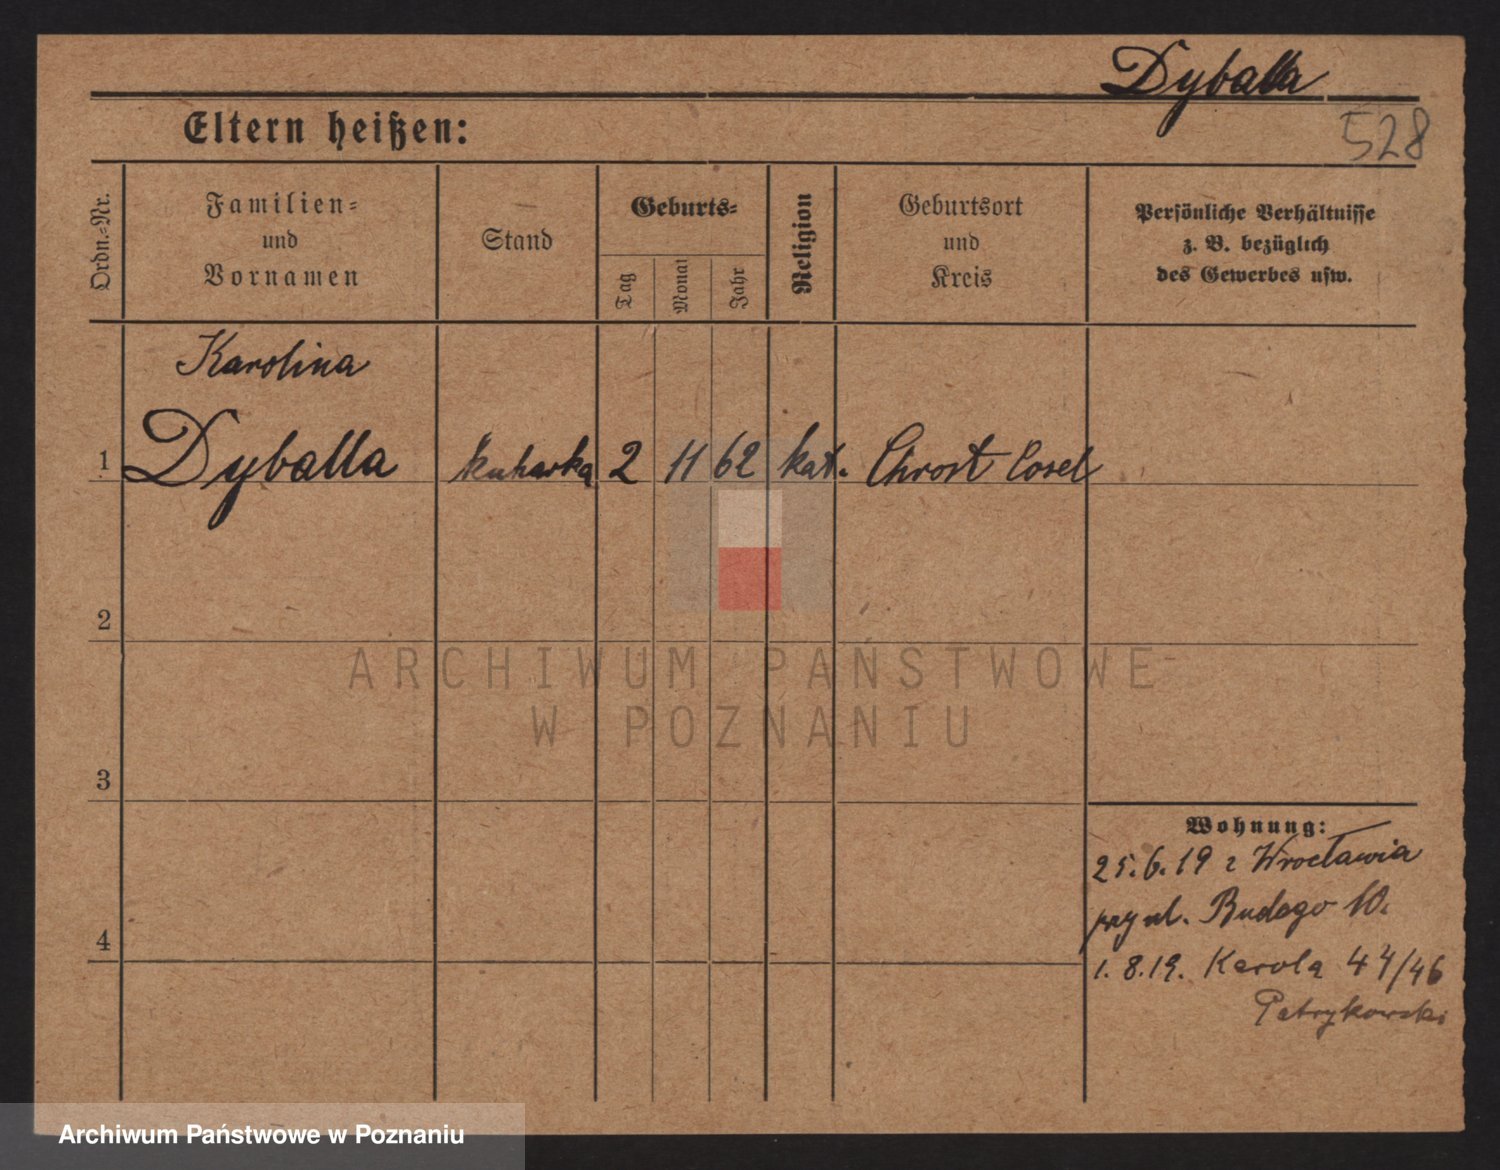 Dyballa
Eltern heißen:
528
Ordn.=Nr.
Familien=
und
Vornamen
Stand
Geburts=
Tag
Monat
Jahr
Religion
Geburtsort
und
Kreis
Persönliche Verhältnisse
z. B. bezüglich
des Gewerbes usw.
Karolina
1 Dyballa kuharka 2 11 62 kat. Chrost Cosel
2
3
4
ARCHIWUM PAŃSTWOWE
W POZNANIU
Wohnung:
25.6.19 z Wrocławia
przy ul. Budego 10.
1.8.19. Karola 44/46
Patrykowski
Archiwum Państwowe w Poznaniu